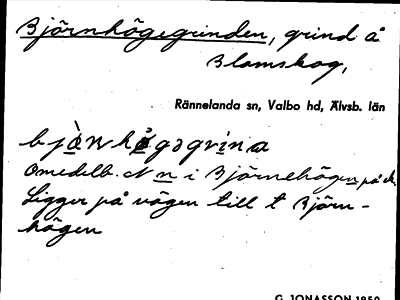 Björnhögegrinden, grind å
Blomskog,
Rännelanda sn, Valbo hd, Älvsb. län
bjὼnhøgǝgrina
Omedelb. N n i Björnehögen på k.
Ligger på vägen till t Björn-
högen
G. JONASSON 1950